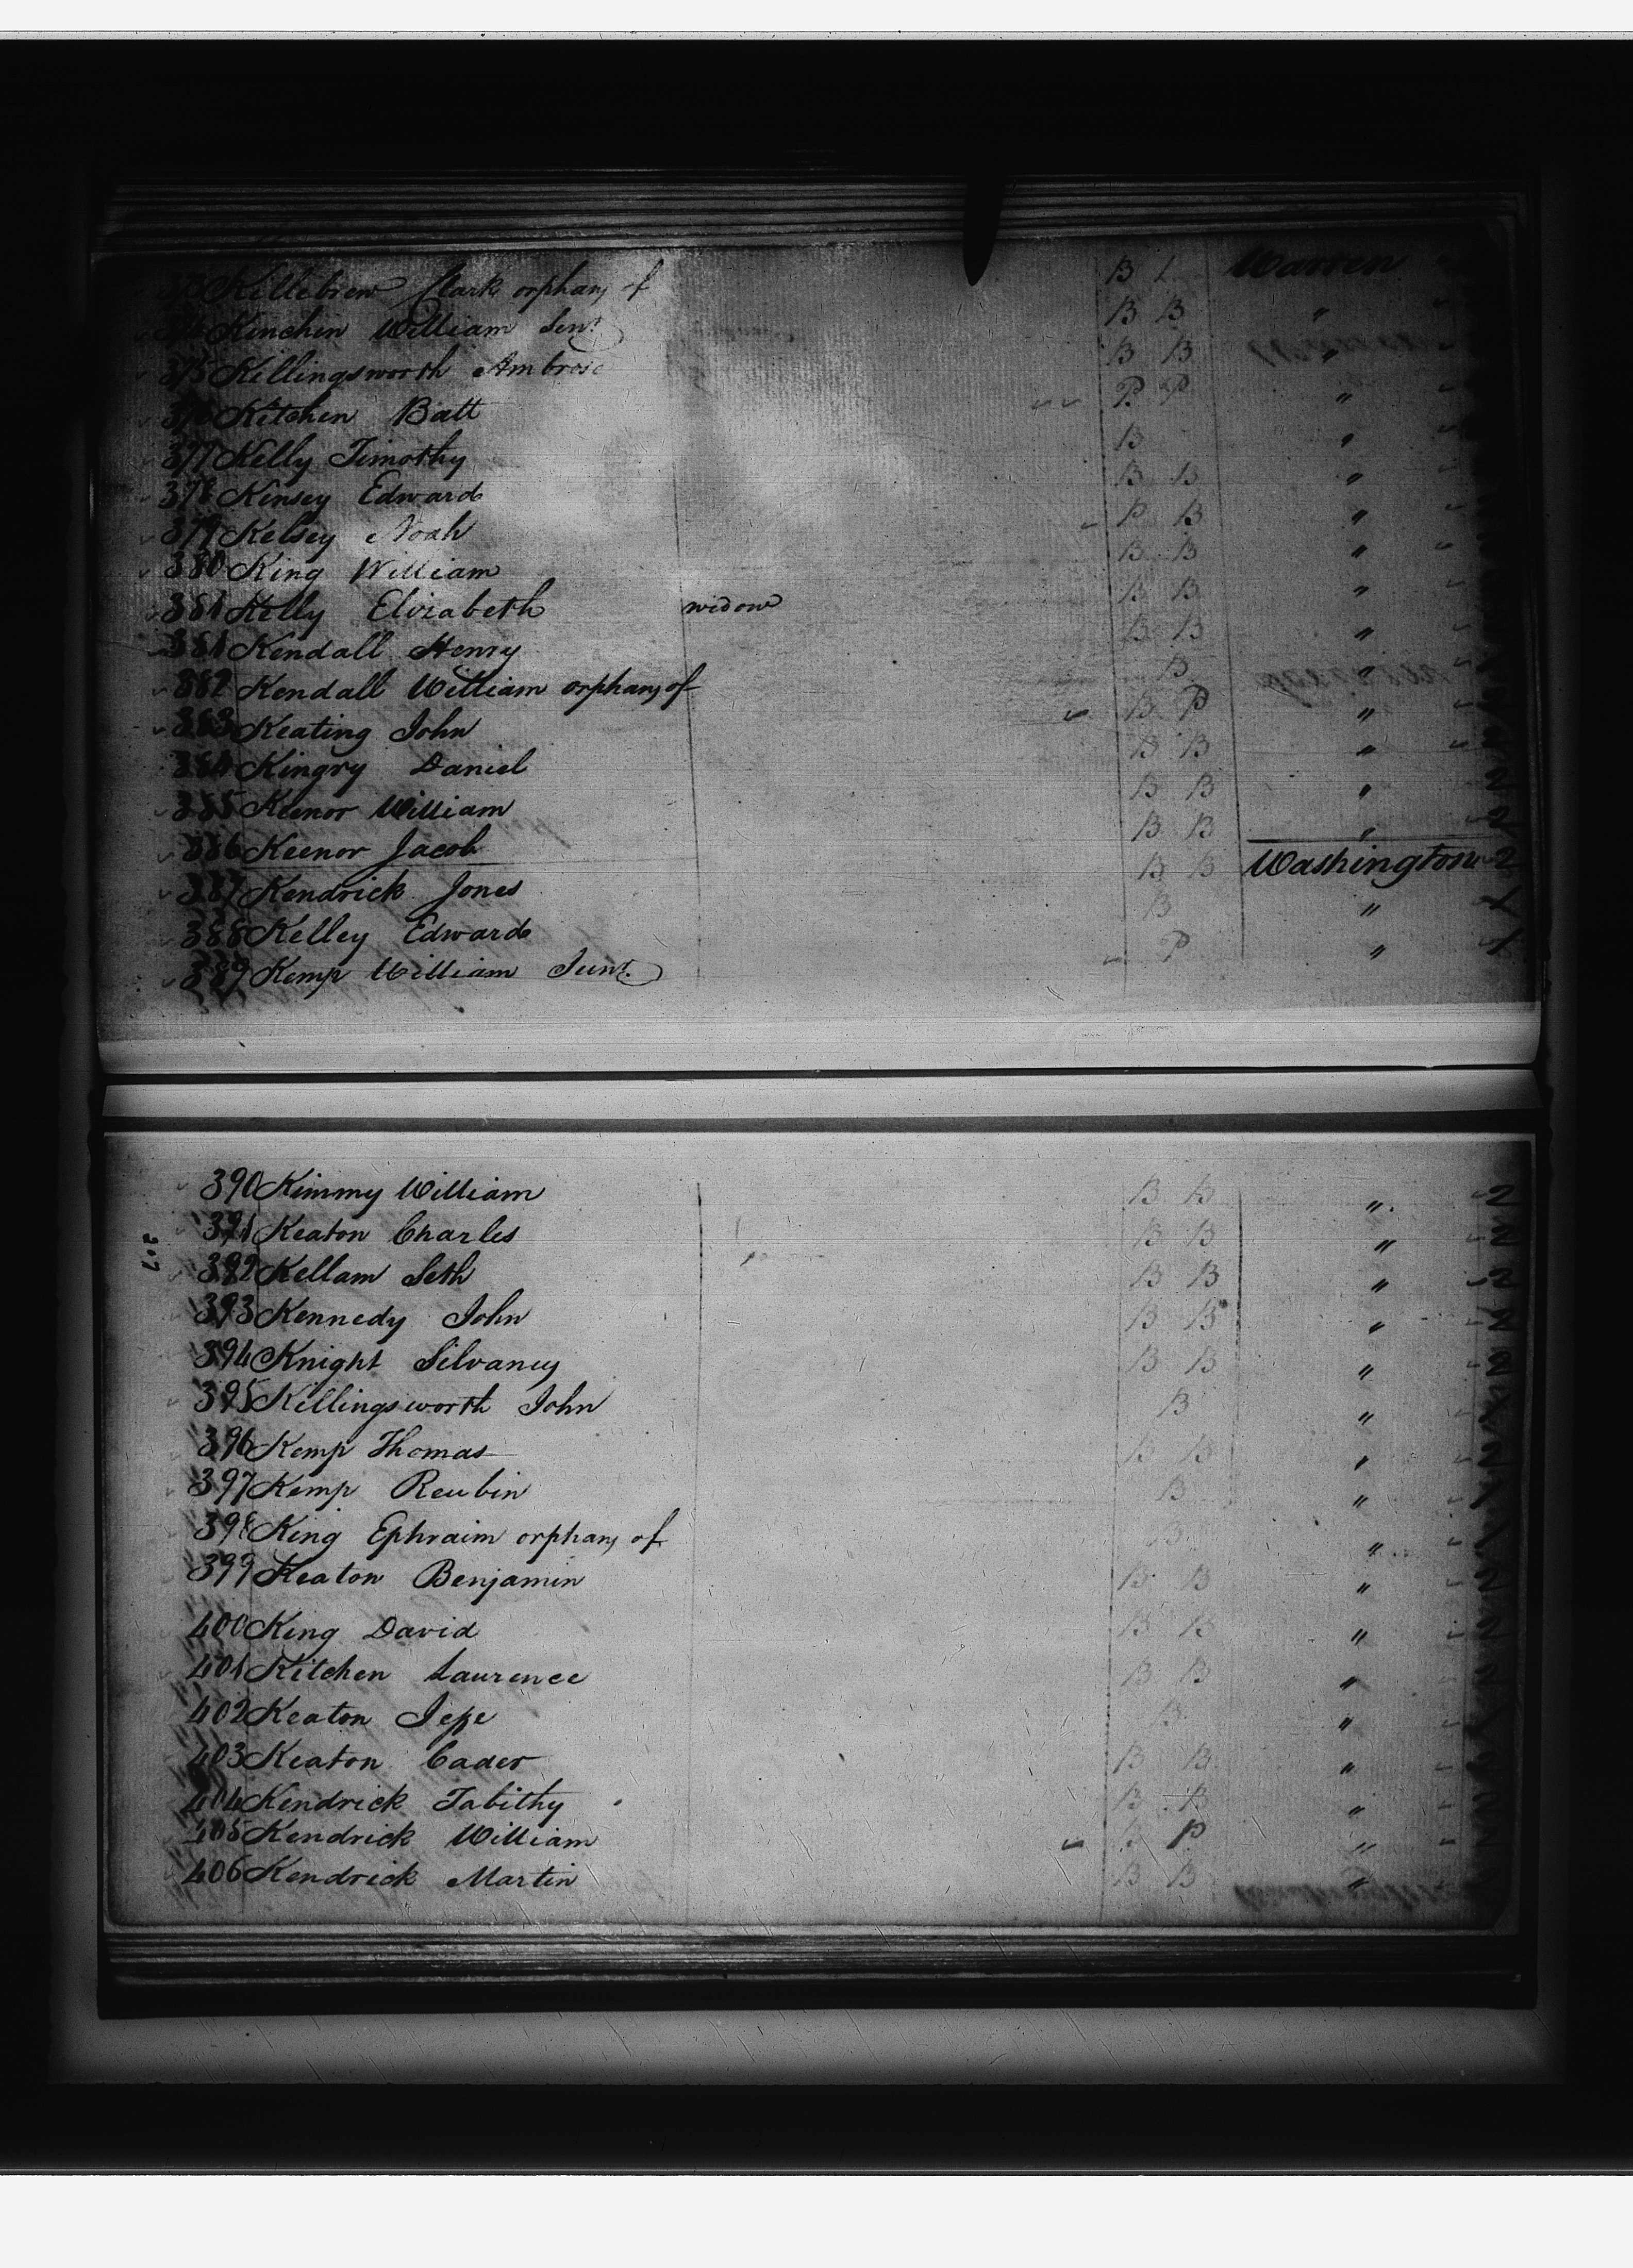 373 Killebrew Clark orphans of B L Warren
374 Kinchin William Senr B B "
375 Killingsworth Ambrose B B "
376 Kitchen Batt P P "
377 Kelly Timothy B "
378 Kinsey Edward B B "
379 Kelsey Noah P B "
380 King William B B "
381 Kelly Elizabeth widow B B "
381 Kendall Henry B B "
382 Kendall William orphans of B "
383 Keating John B P "
384 Kingry Daniel B B "
385 Keenor William B B " 2
386 Keenor Jacob B B " 2
387 Kendrick Jones B B Washington 2
388 Kelley Edward B " 1
389 Kemp William Junr P " 1
390 Kimmy William B B " 2
391 Keaton Charles B B " 2
392 Kellam Seth B B " 2
393 Kennedy John B B " 2
394 Knight Silvaney B B " 2
395 Killingsworth John B " 1
396 Kemp Thomas B B " 2
397 Kemp Reubin B " 1
398 King Ephraim orphans of B " 1
399 Keaton Benjamin B B " 2
400 King David B B " 2
401 Kitchen Laurence B B " 2
402 Keaton Jesse B "
403 Keaton Cader B B " 2
404 Kendrick Tabithy B B " 2
405 Kendrick William P " 2
406 Kendrick Martin B B " 2